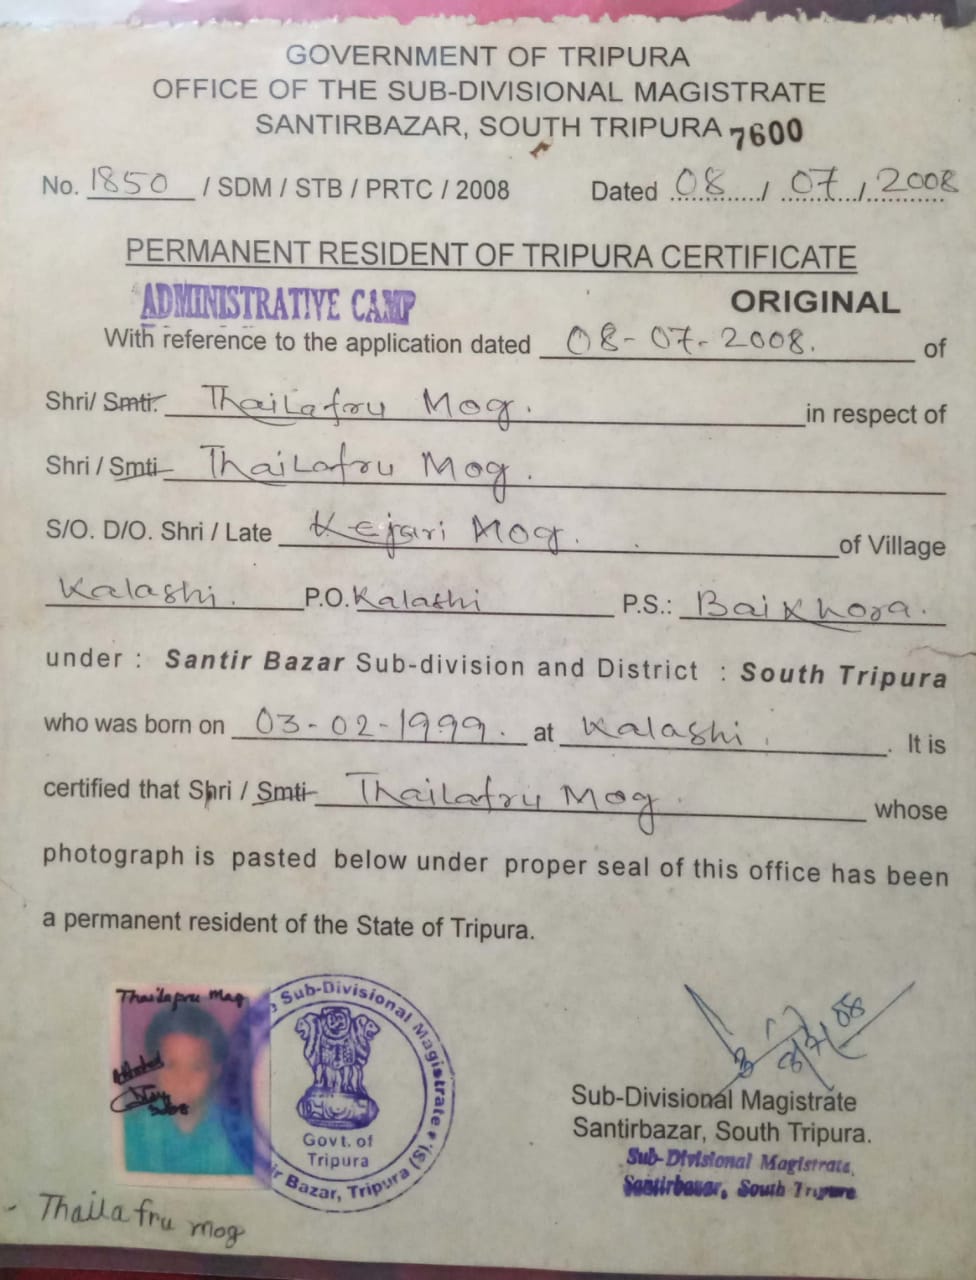 GOVERNMENT OF TRIPURA
OFFICE OF THE SUB-DIVISIONAL MAGISTRATE
SANTIRBAZAR, SOUTH TRIPURA 7600
No. 1850 / SDM / STB / PRTC / 2008 Dated 08 / 07 / 2008
PERMANENT RESIDENT OF TRIPURA CERTIFICATE
ADMINISTRATIVE CAMP ORIGINAL
With reference to the application dated 08-07-2008. of
Shri/ Smti. Thailafru Mog. in respect of
Shri / Smti Thailafru Mog.
S/O. D/O. Shri / Late Kejari Mog. of Village
Kalashi. P.O. Kalashi P.S.: Baikhora.
under : Santir Bazar Sub-division and District : South Tripura
who was born on 03-02-1999. at Kalashi. It is
certified that Shri / Smti Thailafru Mog. whose
photograph is pasted below under proper seal of this office has been
a permanent resident of the State of Tripura.
Thailafru Mog
Sub-Divisional Magistrate
Govt. of
Tripura
ir Bazar, Tripura (S)
8/7/08
Sub-Divisional Magistrate
Santirbazar, South Tripura.
Sub-Divisional Magistrate,
Santirbazar, South Tripura
Thailafru mog